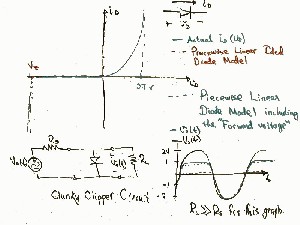 i_D
i_D
+ v_D -
Actual i_D (v_D)
Piecewise Linear Ideal
Diode Model
V_z
v_D
0.7 V
Piecewise Linear
Diode Model including
the "Forward voltage"
R_s
V_s(t)
V_o(t)
R_L
Clunky Clipper Circuit
V_s(t)
V_o(t)
t
R_L >> R_s for this graph.